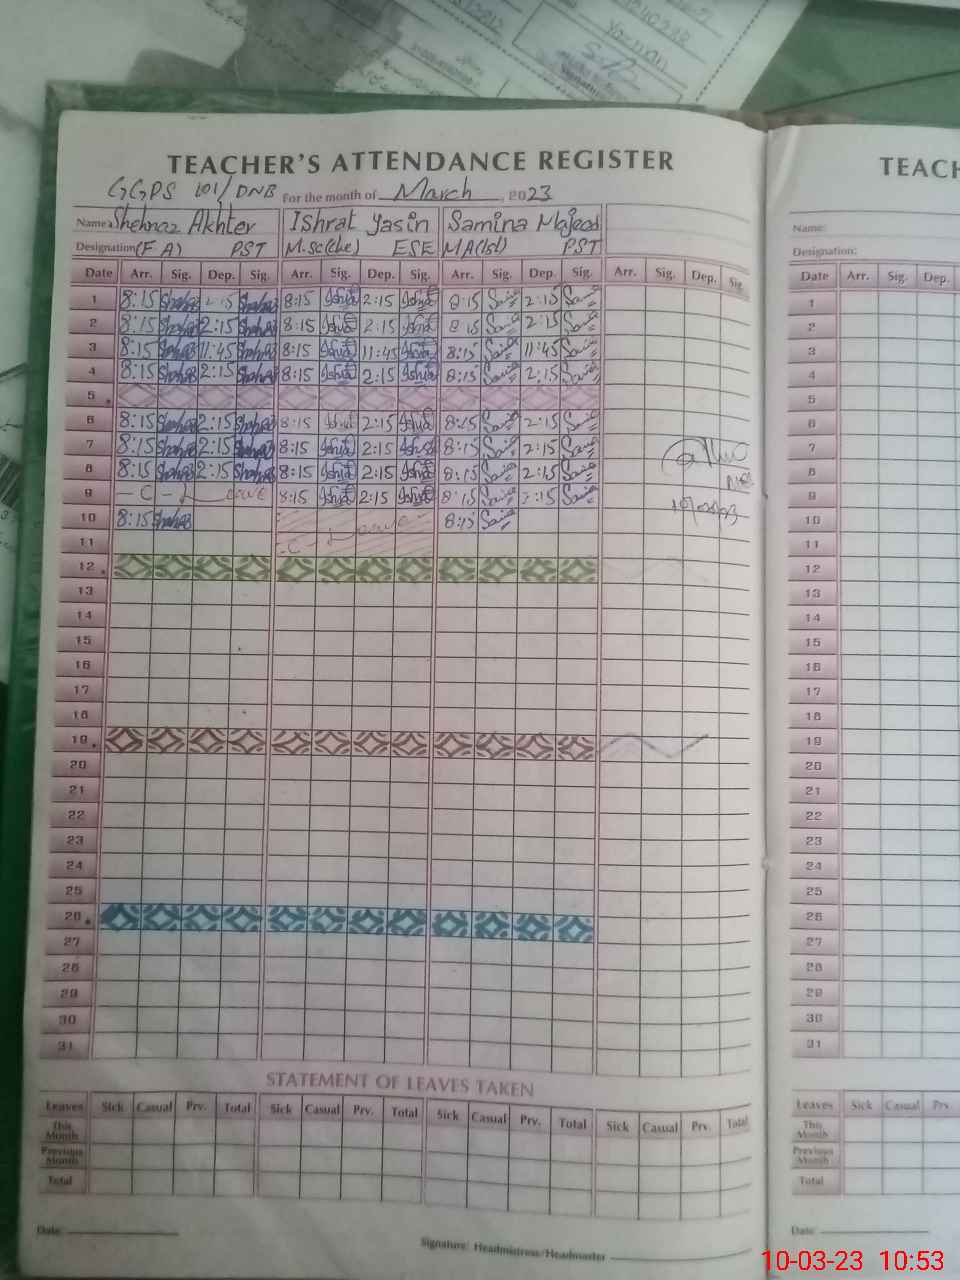 TEACHER'S ATTENDANCE REGISTER
TEACH
GGPS 101/DNB For the month of March, 2023
Name: Shehnaz Akhter Ishrat Yasin Samina Majeed
Name:
Designation (F A) PST M.Sc(che) ESE MA(Isl) PST
Designation:
Date Arr. Sig. Dep. Sig. Arr. Sig. Dep. Sig. Arr. Sig. Dep. Sig. Arr. Sig. Dep. Sig.
Date Arr. Sig. Dep.
1 8:15 2:15 8:15 2:15 8:15 2:15 1
2 8:15 2:15 8:15 2:15 8:15 2:15 2
3 8:15 11:45 8:15 11:45 8:15 11:45 3
4 8:15 2:15 8:15 2:15 8:15 2:15 4
5 5
6 8:15 2:15 8:15 2:15 8:15 2:15 6
7 8:15 2:15 8:15 2:15 8:15 2:15 7
8 8:15 2:15 8:15 2:15 8:15 2:15 8
9 - C - Leave 8:15 2:15 8:15 2:15 9
10 8:15 8:15 10
11 - C - Leave 11
12 12
13 13
14 14
15 15
16 16
17 17
18 18
19 19
20 20
21 21
22 22
23 23
24 24
25 25
26 26
27 27
28 28
29 29
30 30
31 31
STATEMENT OF LEAVES TAKEN
Leaves Sick Casual Prv. Total Sick Casual Prv. Total Sick Casual Prv. Total Sick Casual Prv. Total
Leaves Sick Casual Prv
This Month
This Month
Previous Month
Previous Month
Total
Total
Date:
Signature: Headmistress/Headmaster
Date:
10-03-23 10:53